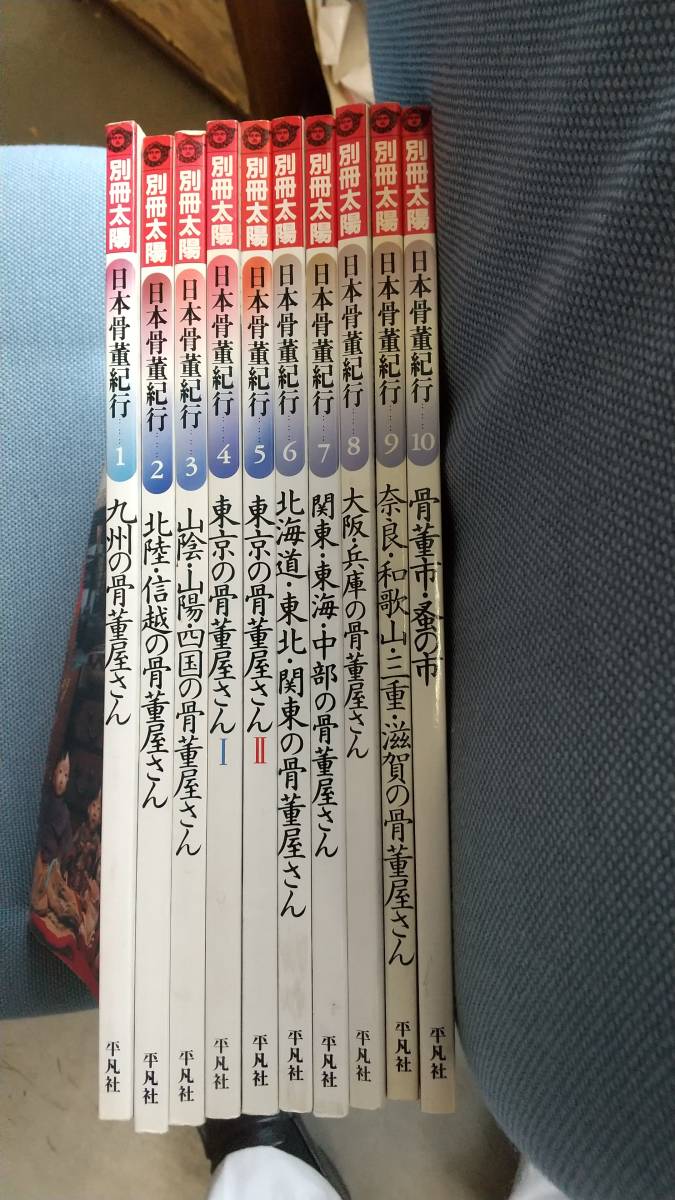 別冊太陽 日本骨董紀行……1 九州の骨董屋さん 平凡社
別冊太陽 日本骨董紀行……2 北陸・信越の骨董屋さん 平凡社
別冊太陽 日本骨董紀行……3 山陰・山陽・四国の骨董屋さん 平凡社
別冊太陽 日本骨董紀行……4 東京の骨董屋さんⅠ 平凡社
別冊太陽 日本骨董紀行……5 東京の骨董屋さんⅡ 平凡社
別冊太陽 日本骨董紀行……6 北海道・東北・関東の骨董屋さん 平凡社
別冊太陽 日本骨董紀行……7 関東・東海・中部の骨董屋さん 平凡社
別冊太陽 日本骨董紀行……8 大阪・兵庫の骨董屋さん 平凡社
別冊太陽 日本骨董紀行……9 奈良・和歌山・三重・滋賀の骨董屋さん 平凡社
別冊太陽 日本骨董紀行……10 骨董市・蚤の市 平凡社